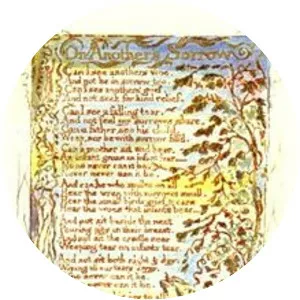 On Anothers Sorrow
Can I see anothers woe,
And not be in sorrow too.
Can I see anothers grief,
And not seek for kind relief.
Can I see a falling tear,
And not feel my sorrows share,
Can a father see his child,
Weep, nor be with sorrow fill'd.
Can a mother sit and hear,
An infant groan an infant fear
No no never can it be,
Never never can it be.
And can he who smiles on all
Hear the wren with sorrows small,
Hear the small birds grief & care
Hear the woes that infants bear
And not sit beside the nest
Pouring pity in their breast,
And not sit the cradle near
Weeping tear on infants tear.
And not sit both night & day,
Wiping all our tears away,
never can it be,
never can it be.